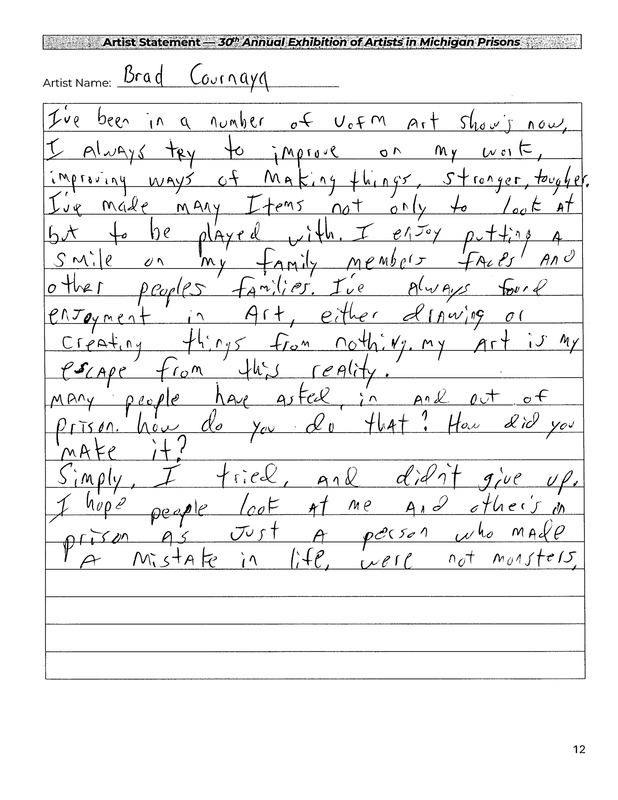 Artist Statement — 30th Annual Exhibition of Artists in Michigan Prisons
Artist Name: Brad Cournaya
I've been in a number of UofM Art show's now,
I Always try to improve on my work,
improving ways of Making things, stronger, tougher.
I've made many Items not only to look At
but to be played with. I enjoy putting A
smile on my family members faces And
other peoples families. I've Always found
enjoyment in Art, either drawing or
creating things from nothing. my Art is my
escape from this reality.
many people have asked, in and out of
prison. how do you do that? How did you
make it?
Simply, I tried, and didn't give up.
I hope people look At me And other's in
prison As Just A person who made
A Mistake in life, were not monsters,
12